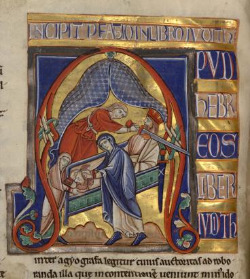 INCIPIT PFATIO IN LIBRO IVDITH
PUD
HEBR
EOS
LIBER
IUDITH
inter agyografa legitur cuius auctoritas ad robo
randa illa que in contentionem ueniunt minus ido